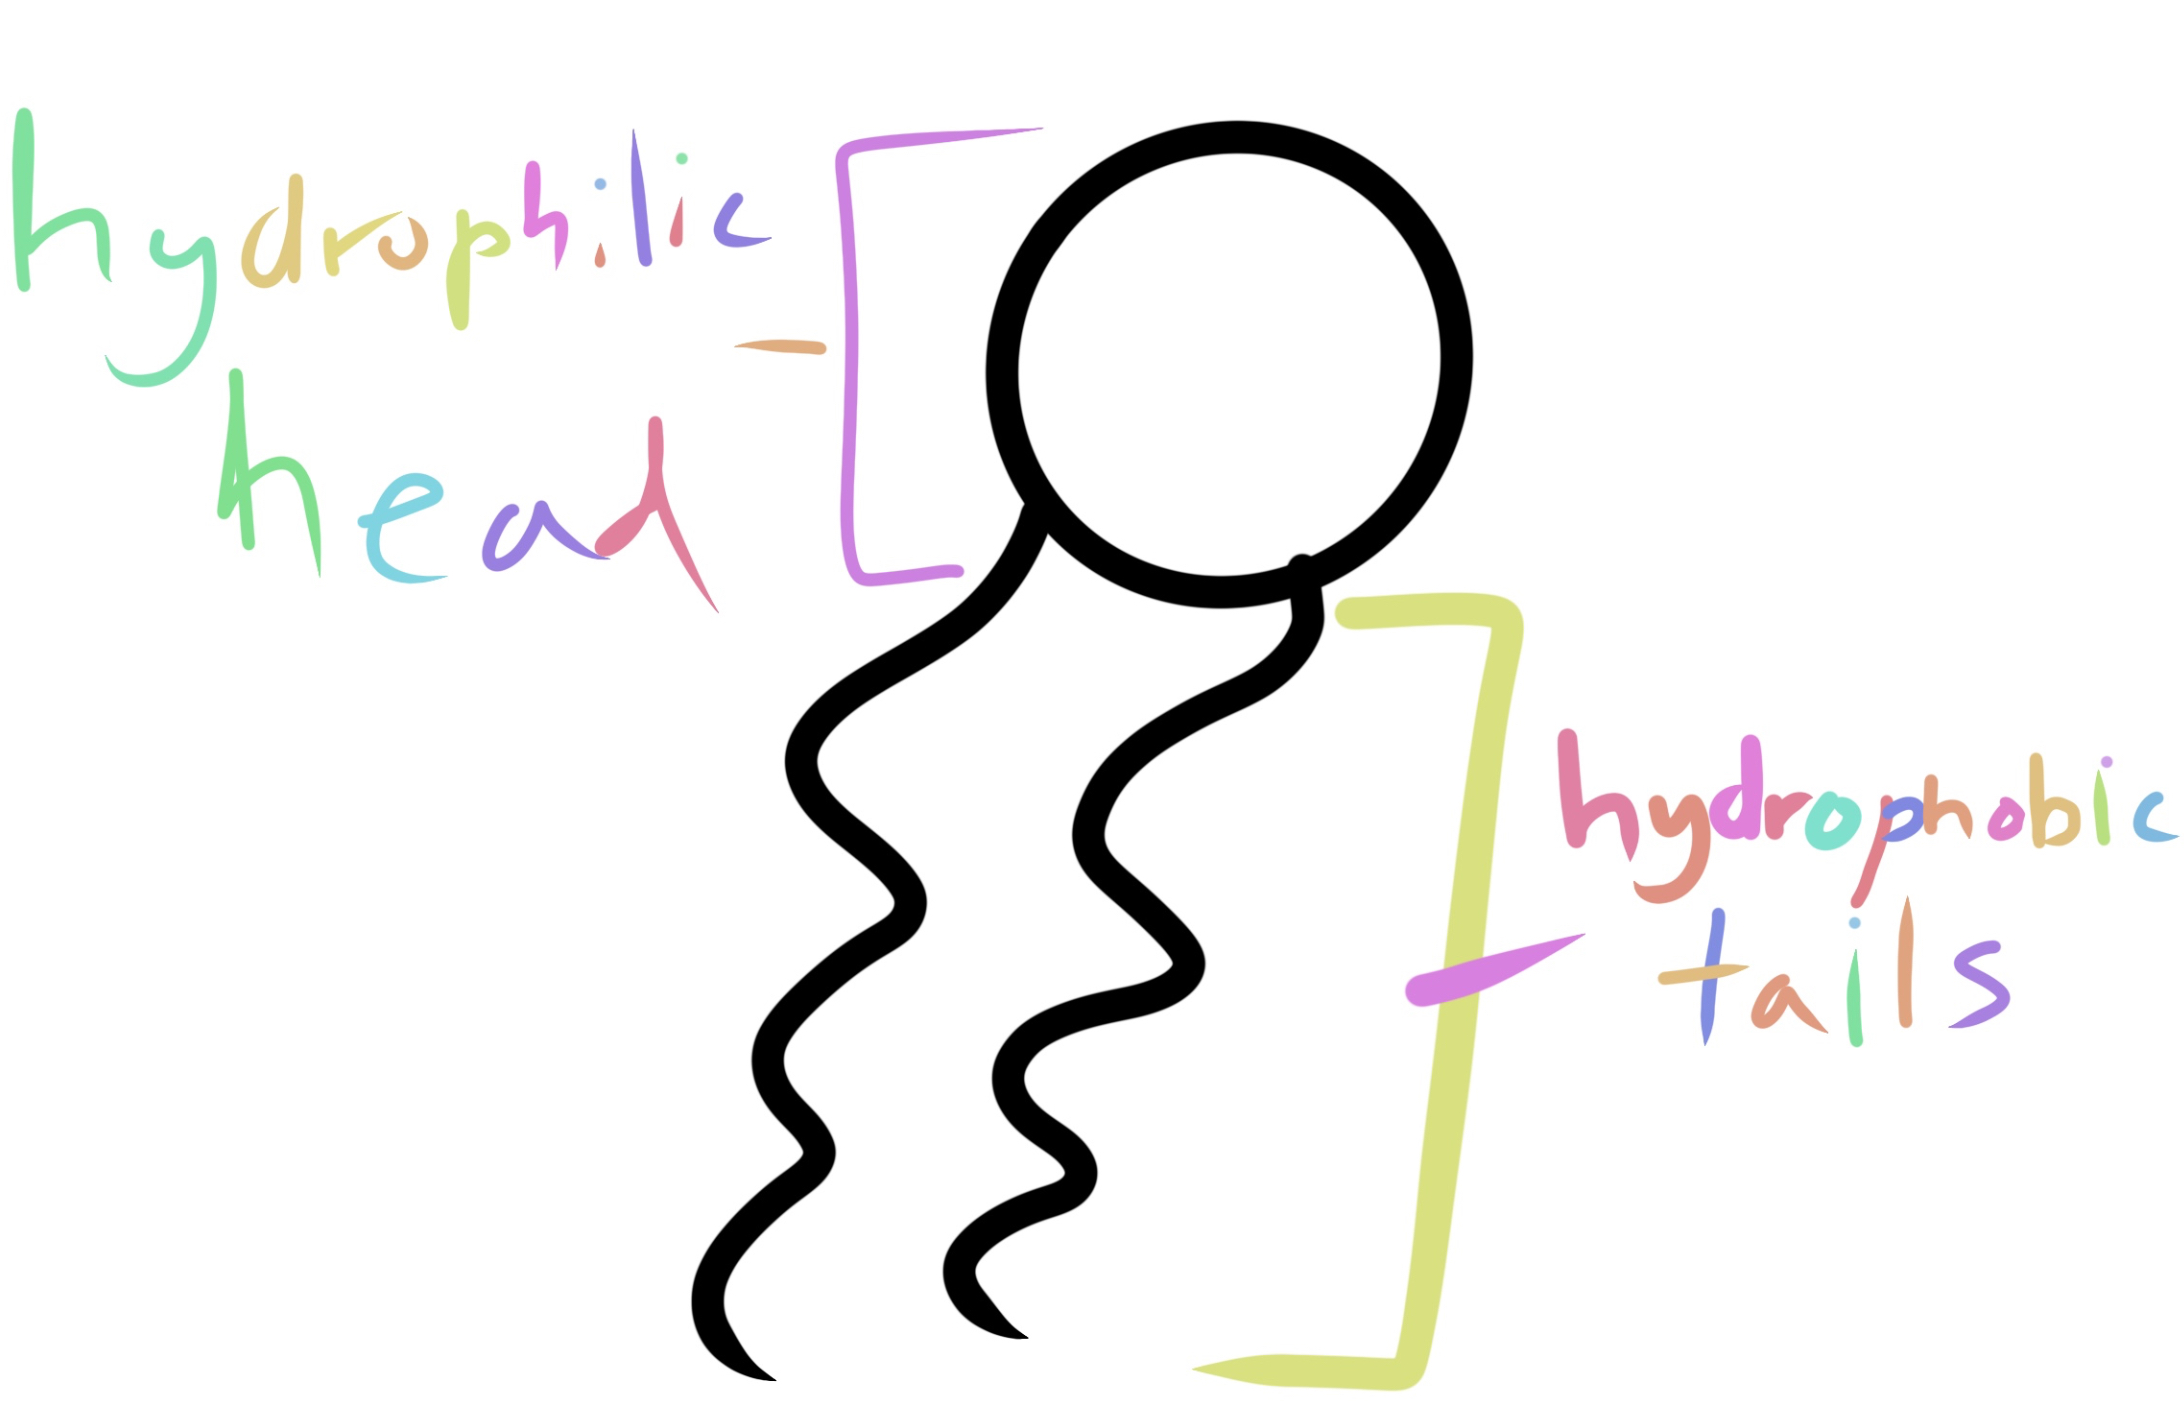 hydrophilic
head
hydrophobic
tails